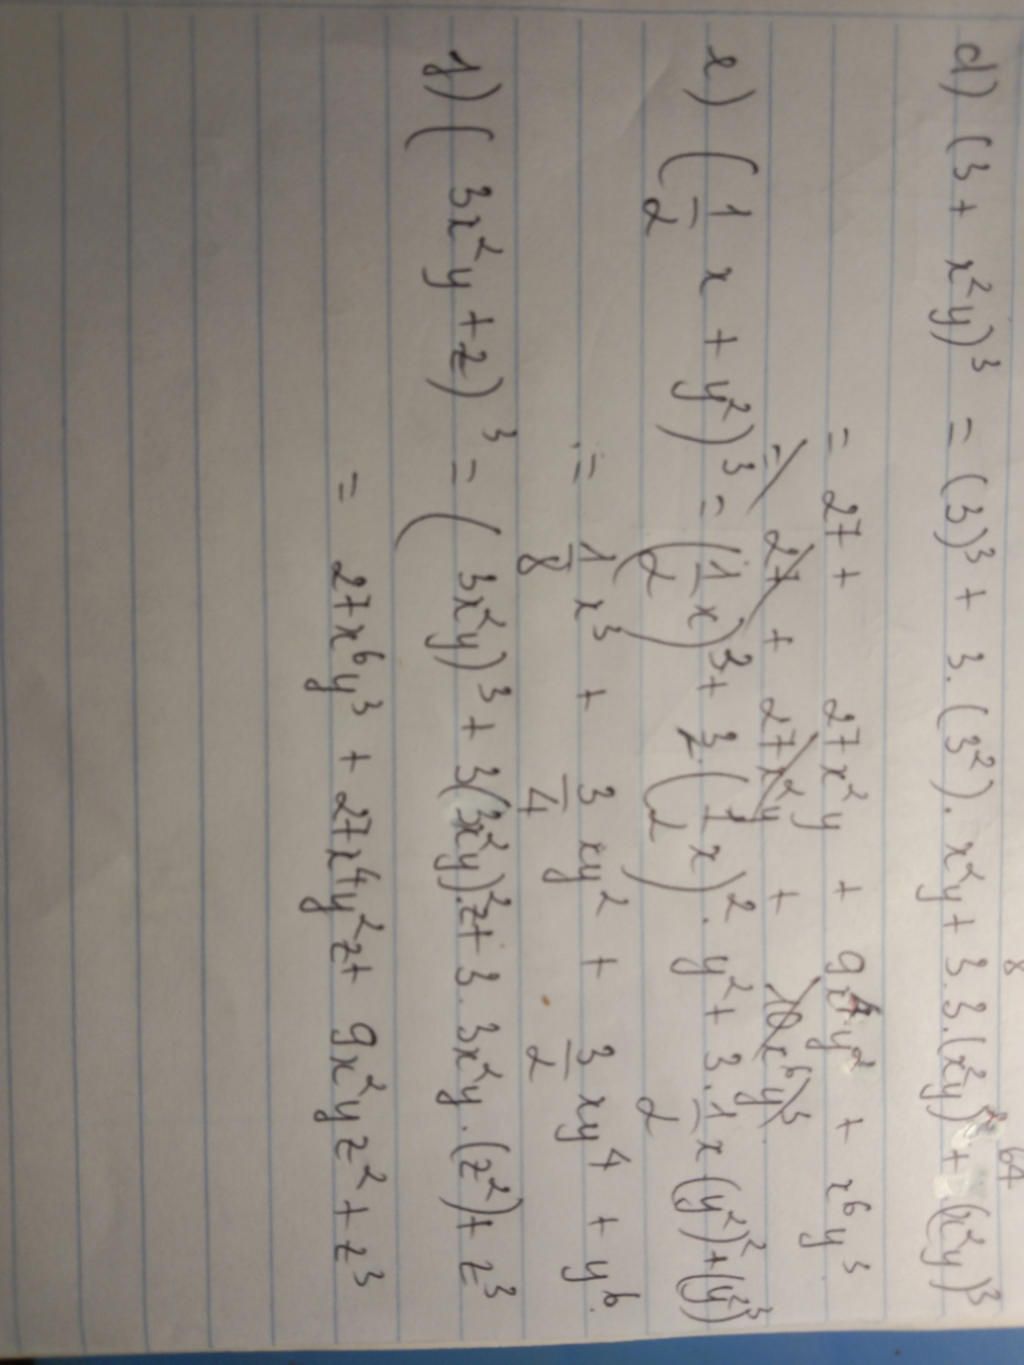 8 64
d) (3 + x²y)³ = (3)³ + 3.(3²).x²y + 3.3.(x²y)² + (x²y)³
= 27 + 27x²y + 9x⁴y² + x⁶y³
= 27 + 27x²y + x⁶y³
e) (1/2 x + y²)³ = (1/2 x)³ + 3.(1/2 x)².y² + 3.1/2 x(y²)² + (y²)³
= 1/8 x³ + 3/4 xy² + 3/2 xy⁴ + y⁶.
f) (3x²y + z)³ = (3x²y)³ + 3(3x²y)².z + 3.3x²y.(z²) + z³
= 27x⁶y³ + 27x⁴y²z + 9x²yz² + z³